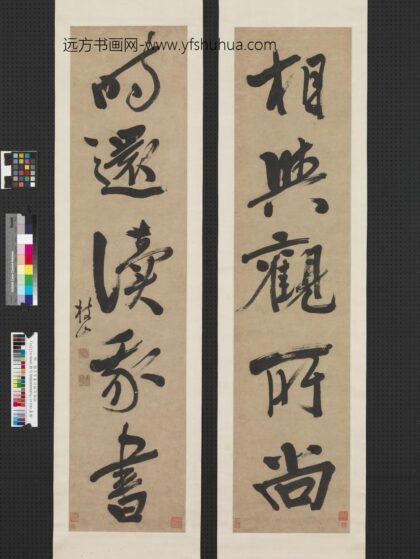 远方书画网-www.yfshuhua.com
相與觀所尚
時還讀我書
樹山